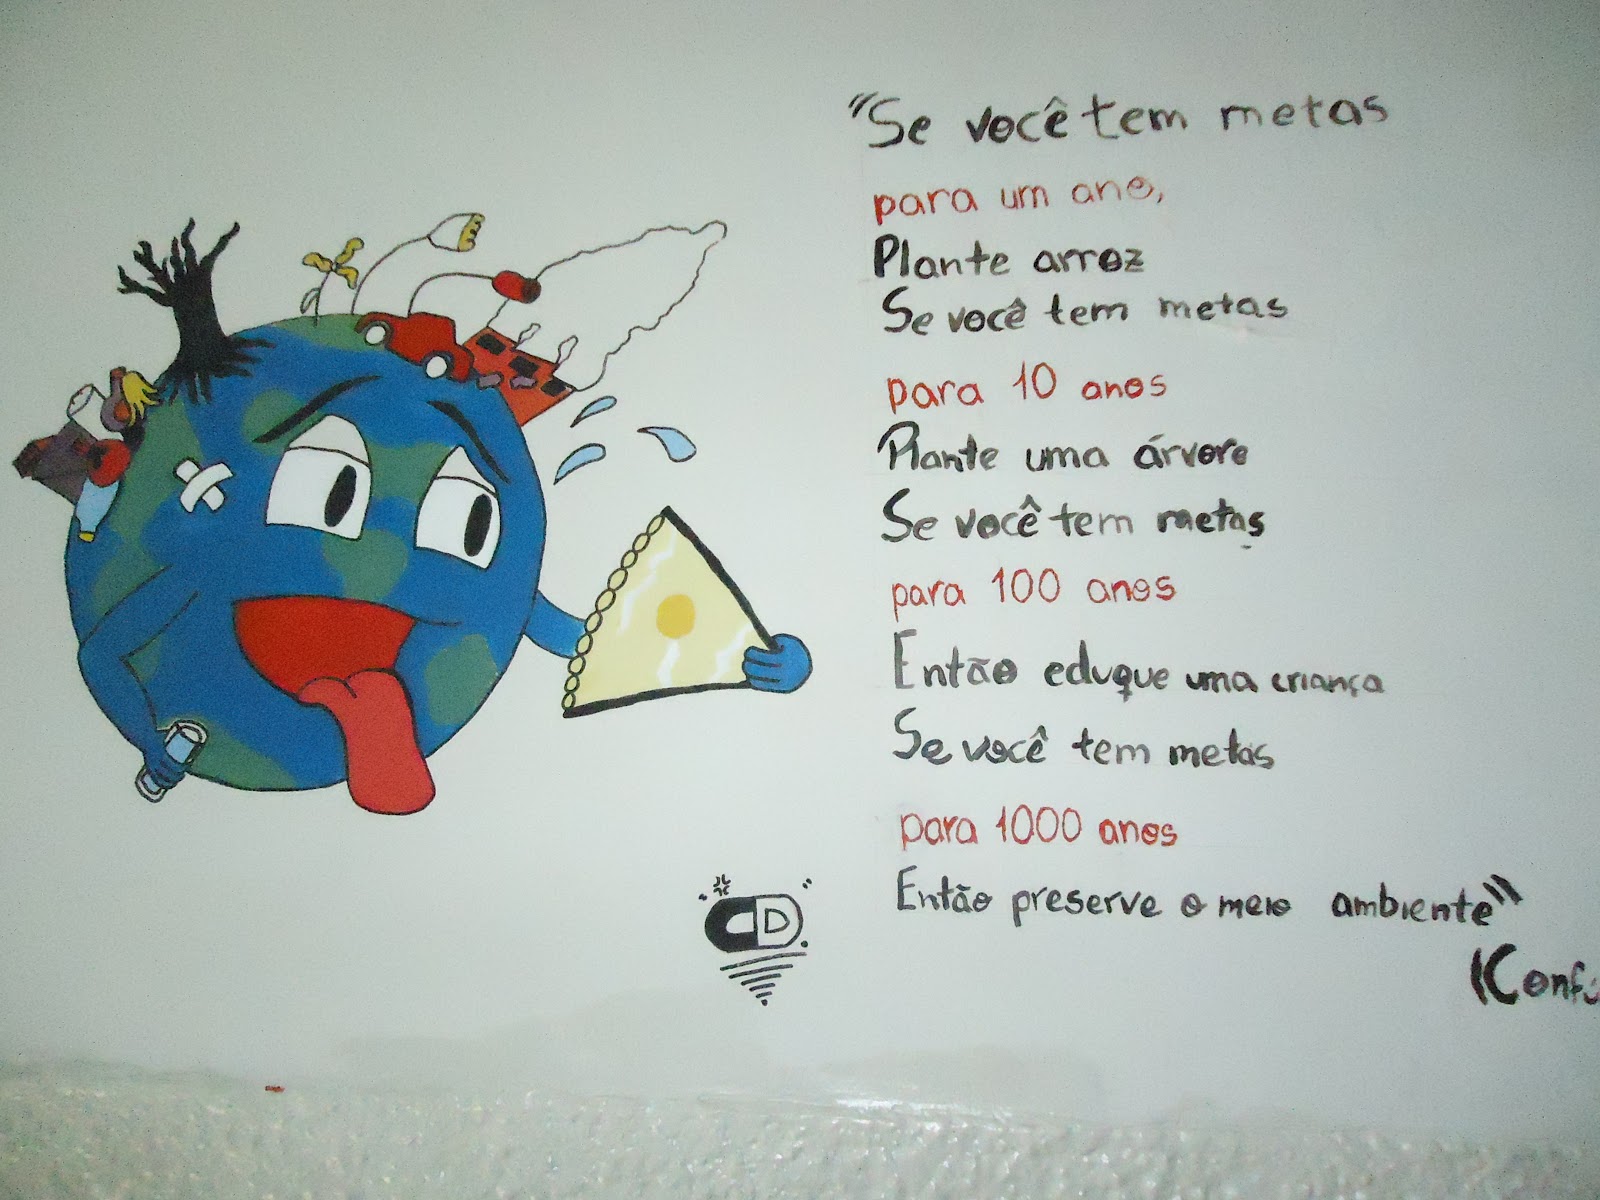 "Se você tem metas
para um ano,
Plante arroz
Se você tem metas
para 10 anos
Plante uma árvore
Se você tem metas
para 100 anos
Então eduque uma criança
Se você tem metas
para 1000 anos
Então preserve o meio ambiente"
CD